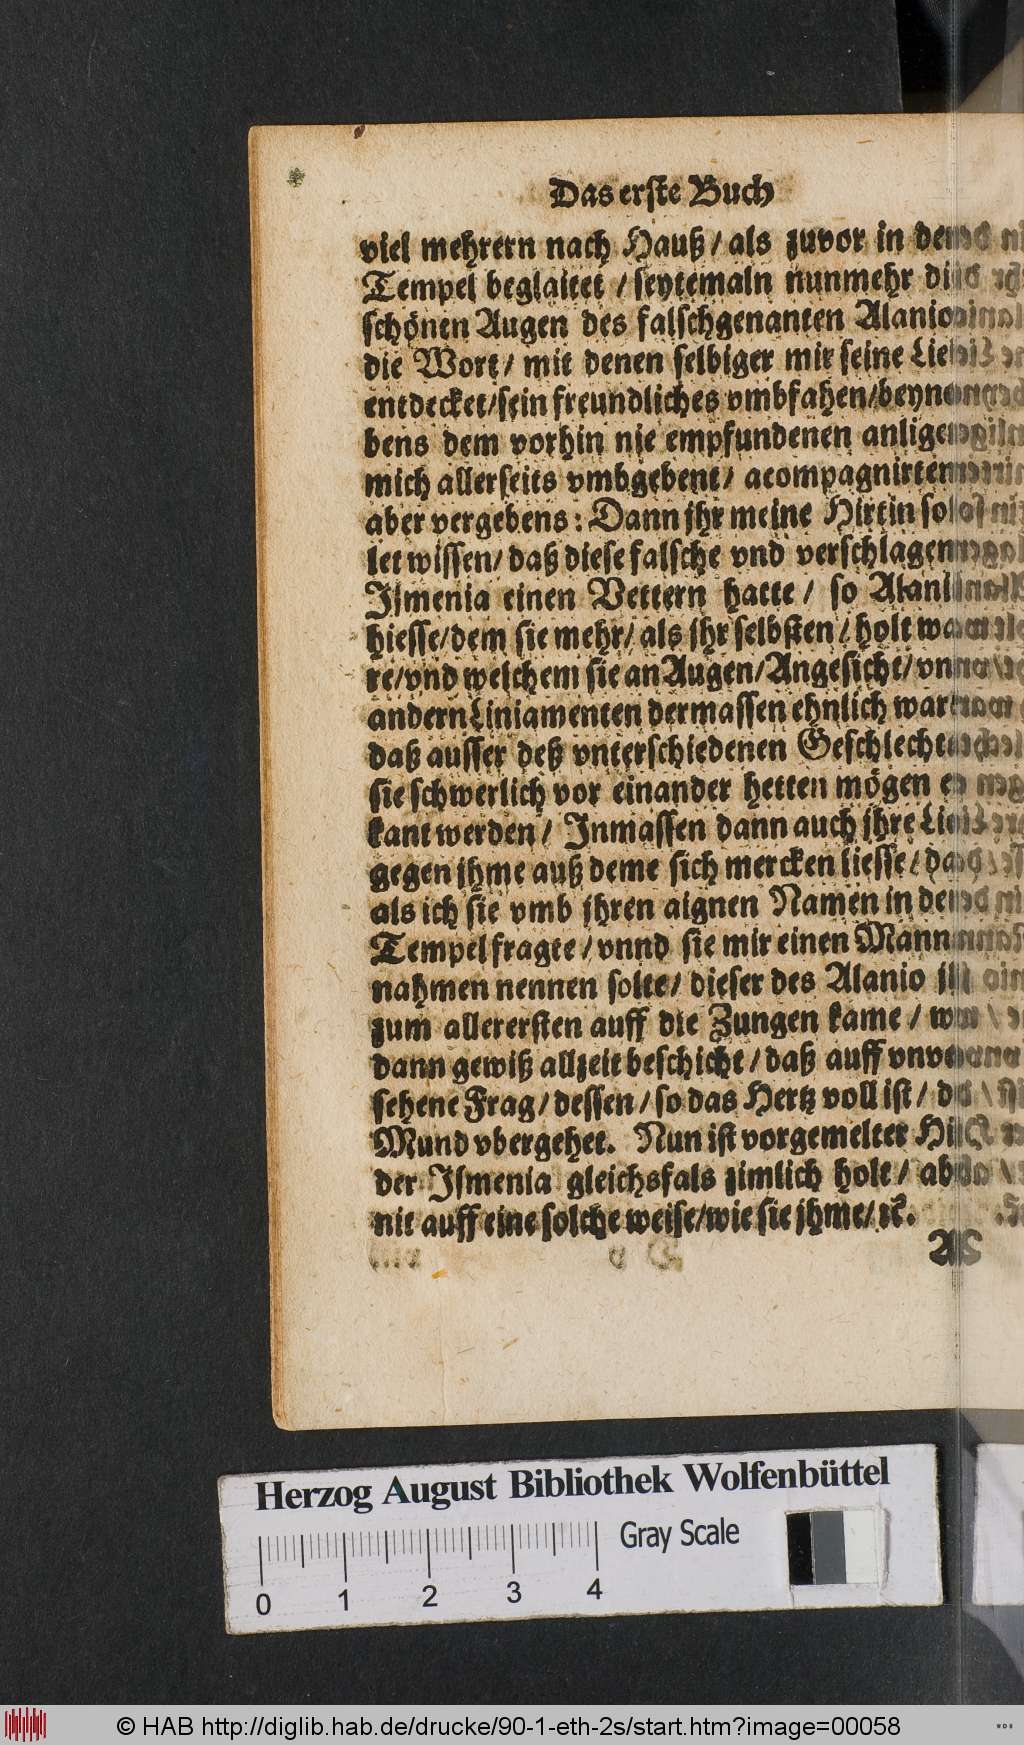 Das erste Buch
viel mehrern nach Hauß / als zuvor in dem
Tempel beglaitet / seytemaln nunmehr die
schönen Augen des falschgenanten Alanio
die Wort / mit denen selbiger mir seine Liebe
entdecket/sein freundliches vmbfahen/beyne-
bens dem vorhin nie empfundenen anligen
mich allerseits vmbgebent / acompagnirten
aber vergebens: Dann jhr meine Hirtin sol-
let wissen/ daß diese falsche vnd verschlagene
Ismenia einen Vettern hatte / so Alanius
hiesse/dem sie mehr/ als jhr selbsten / holt wa-
re/vnd welchem sie an Augen/Angesicht/ vnd
andern Liniamenten dermassen ehnlich war
daß ausser deß vnterschiedenen Geschlechts
sie schwerlich vor einander hetten mögen er-
kant werden / Inmassen dann auch jhre Liebe
gegen jhme auß deme sich mercken liesse / daß
als ich sie vmb jhren aignen Namen in dem
Tempel fragte / vnnd sie mir einen Mann-
nahmen nennen solte/ dieser des Alanio jhr
zum allerersten auff die Zungen kame / wie
dann gewiß allzeit beschicht / daß auff vnver-
sehene Frag / dessen / so das Hertz voll ist / der
Mund vbergehet. Nun ist vorgemelter Hirt
der Ismenia gleichsfals zimlich holt / aber
nit auff eine solche weise/wie sie jhme/ ꝛc.
Herzog August Bibliothek Wolfenbüttel
Gray Scale
0 1 2 3 4
© HAB http://diglib.hab.de/drucke/90-1-eth-2s/start.htm?image=00058